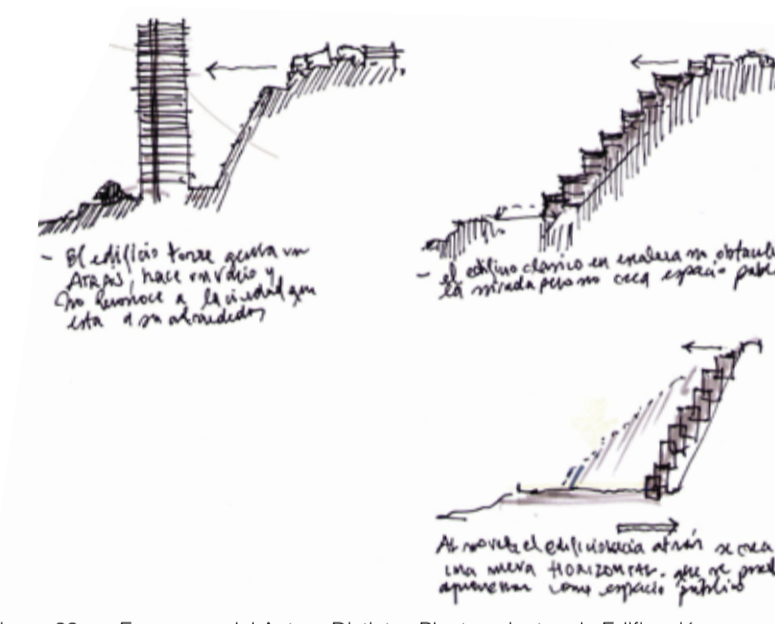 - El edificio torre genera un
ATRÁS, hace un vacio y
no reconoce a la ciudad que
esta a su alrededor
- el edificio clasico en escalera no obtacul
la mirada pero no crea espacio publ
Al mover el edificio hacia atrás se crea
una nueva HORIZONTAL. que se pued
aprovechar como espacio publico